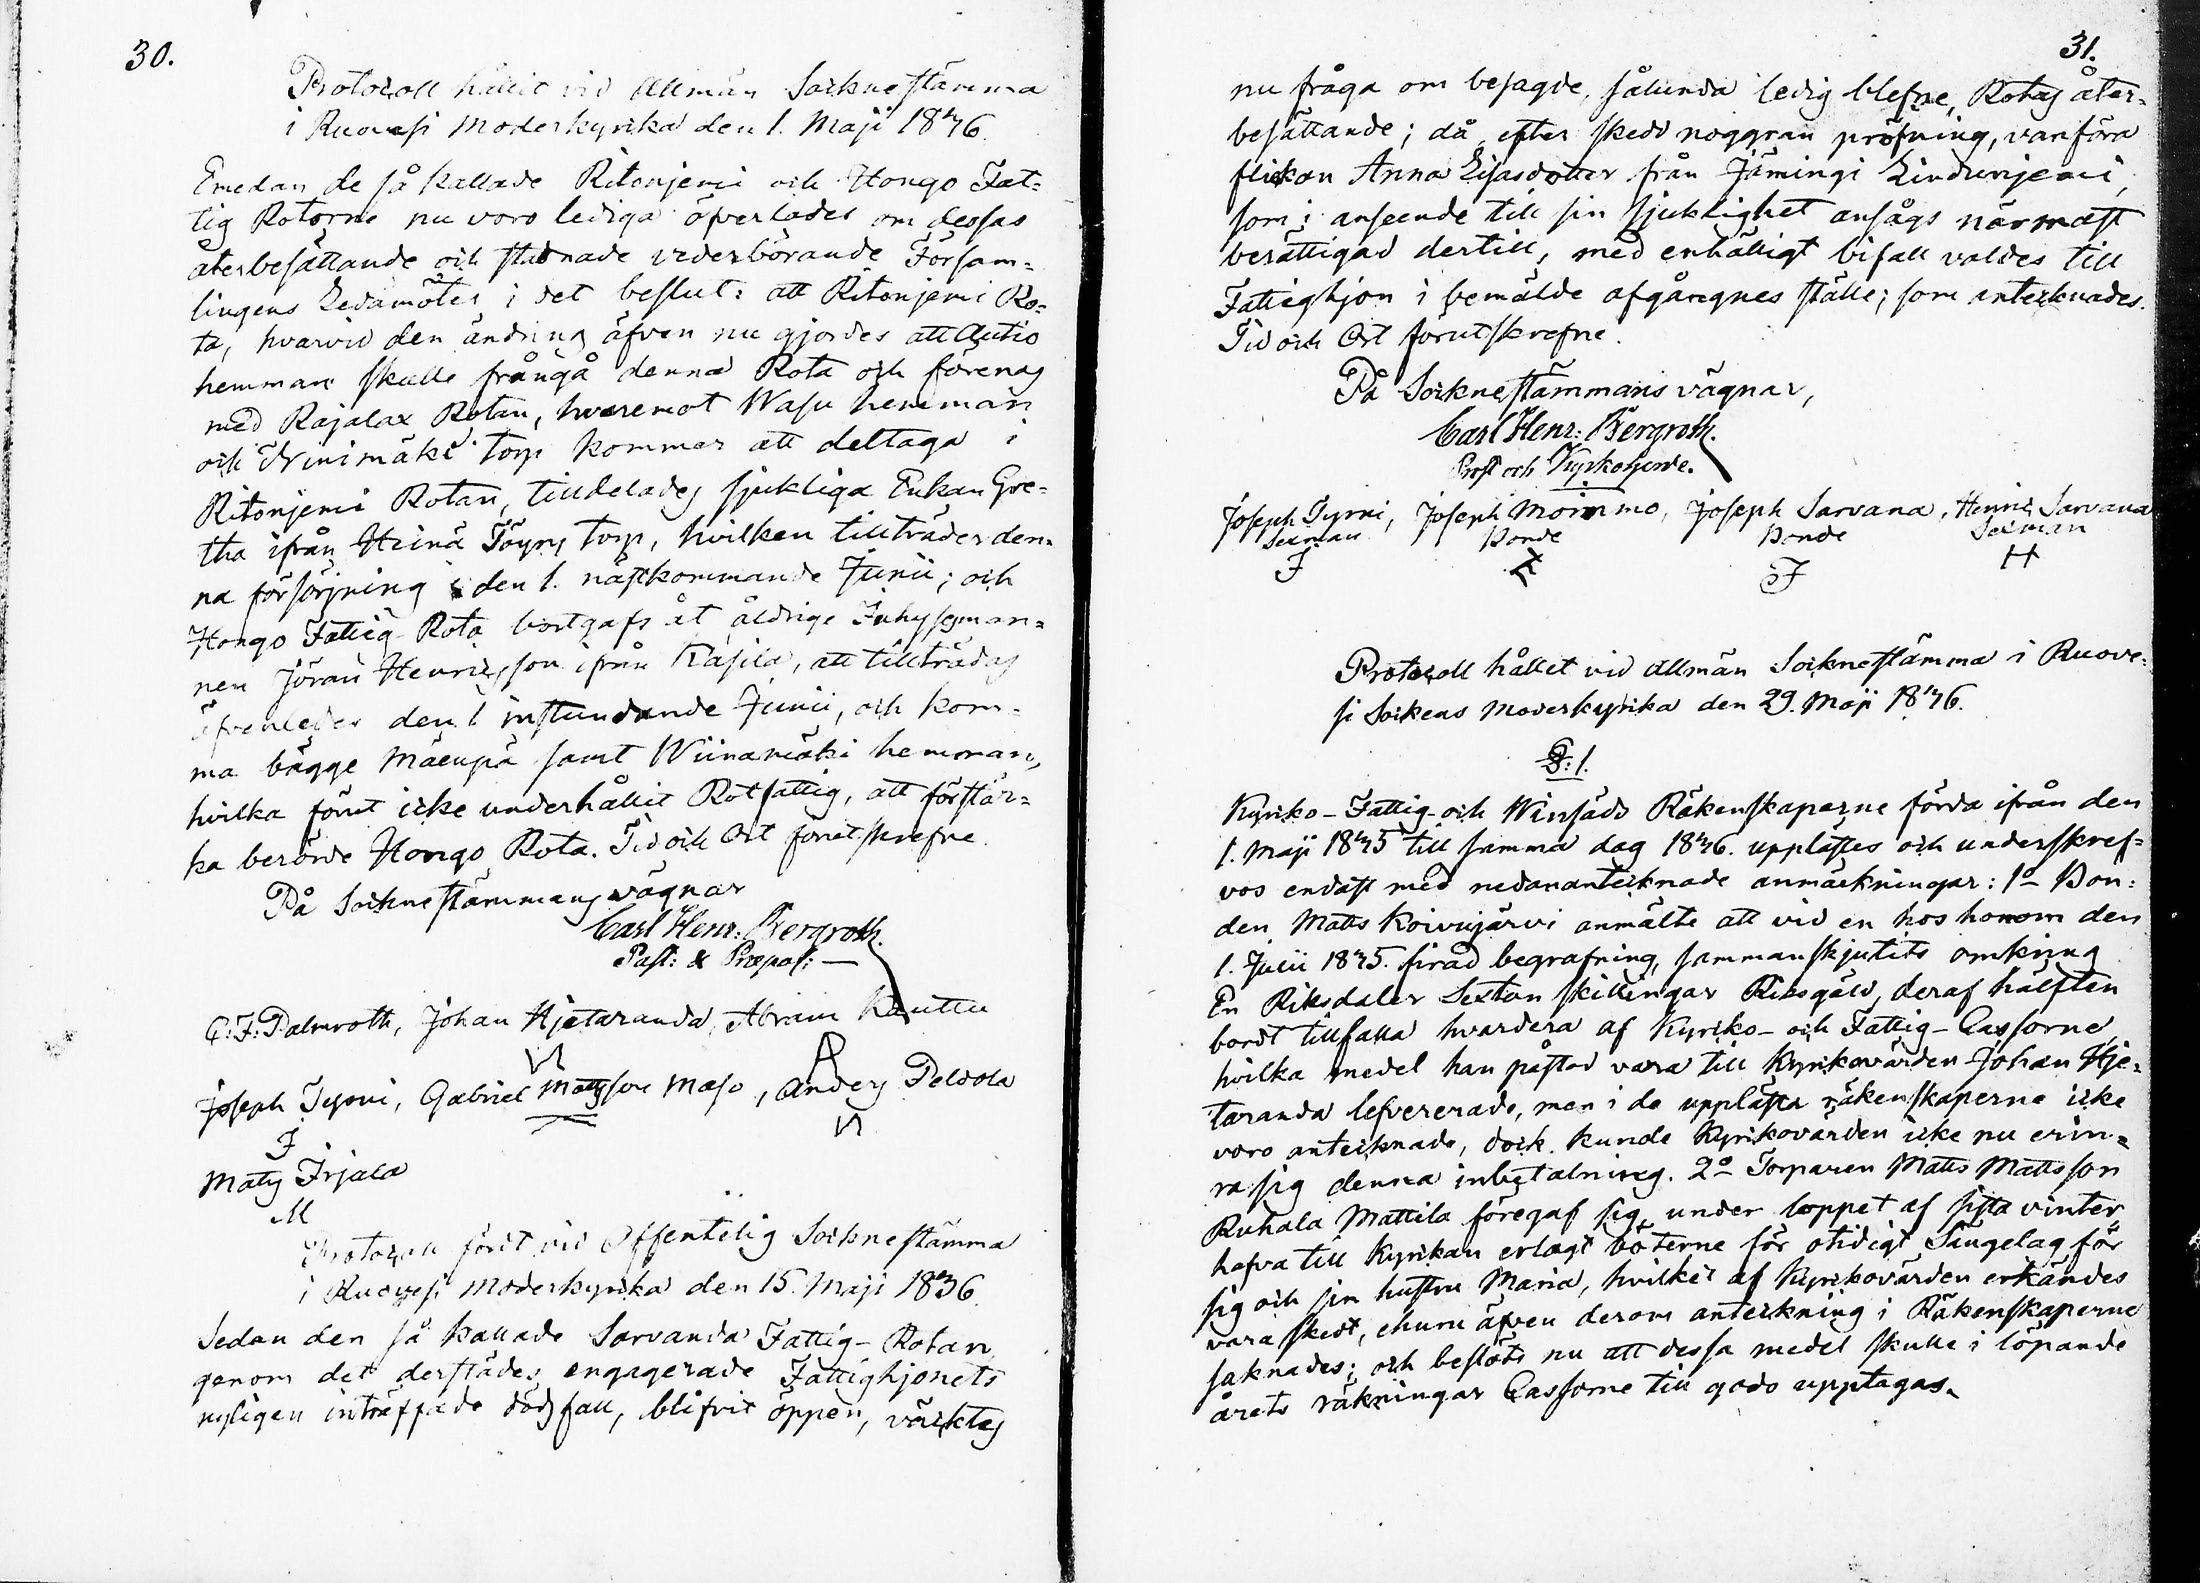 30.
Protocoll hållit vid Allmän Sockne stämma
i Ruovesi Moderkyrka den 1. Maji 1836.
Emedan de så kallade Ritoniemi och Hongo Fat=
tig Rotorne nu voro lediga öfverlades om dessas
återbesättande och stadnade vederbörande Försam=
lingens Ledamöter i det beslut: att Ritoniemi Ro=
ta, hvarvid den ändring äfven nu gjordes att Autio
hemman skulle frångå denna Rota och förenas
med Rajalax Rotan, hvaremot Wasu hemman
och Niinimäki Torp kommer att deltaga i
Ritoniemi Rotan, tilldelades sjukliga Enkan Gre=
tha ifrån Heinä Töyry torp, hvilken tillträder den=
na försörjning den 1. nästkommande Junii; och
Hongo Fattig-Rota bortgafs åt åldrige Inhysesman=
nen Jöran Henricsson ifrån Kasila, att tillträdas
äfvenledes den 1 instundande Junii, och kom=
ma bägge Mäenpä samt Wiinamäki hemman,
hvilka förut icke underhållit Rotfattig, att förstär=
ka berörde Hongo Rota. Tid och Ort förutskrefne.
På Socknestämmans vägnar
Carl Henr: Bergroth.
Past: & Præpos: —
C: F: Palmroth, Johan Hjetaranda, Abram Kauttu
Joseph Tyrni, Gabriel Mattsson Maso, Anders Peldola
J
Matts Irjala
M
Protocoll fördt vid Offentelig Socknestämma
i Ruovesi Moderkyrka den 15. Maji 1836.
Sedan den så kallade Sarvanda Fattig-Rotan,
genom det derstädes engagerade Fattighjonets
nyligen inträffade dödsfall, blifvit öppen, väcktes
31.
nu fråga om besagde, sålunda ledig blefne, Rotas åter=
besättande; då, efter skedd noggran pröfning, vanföra
flickan Anna Lisasdotter från Jämingi Linduniemi,
som i anseende till sin sjuklighet ansågs närmast
berättigad dertill, med enhälligt bifall valdes till
Fattighjon i bemälde afgångnes ställe; som antecknades.
Tid och Ort förutskrefne.
På Socknestämmans vägnar,
Carl Henr: Bergroth.
Prost och Kyrkoherde.
Joseph Tyrni, Joseph Mommo, Joseph Sarvana, Henric Sarvana
Sexman Bonde Bonde Sexman
J J H
Protocoll hållet vid Allmän Socknestämma i Ruove=
si Sockens Moderkyrka den 29. Maji 1836.
§: 1.
Kyrko-Fattig-och Winsäds Räkenskaperne förda ifrån den
1. Maji 1835 till samma dag 1836. upplästes och underskref=
vos endast med nedanantecknade anmärkningar: 1o Bon=
den Matts Koivujärvi anmälte att vid en hos honom den
1. Julii 1835. firad begrafning, sammanskjutits omkring
En Riksdaler Sexton skillingar Riksgäld, deraf hälften
bordt tillfalla hvardera af Kyrko- och Fattig-Cassorne,
hvilka medel han påstod vara till Kyrkovärden Johan Hje=
taranda lefvererade, men i de upplästa räkenskaperne icke
voro antecknade, dock kunde Kyrkovärden icke nu erin=
ra sig denna inbetalning. 2o Torparen Matts Mattsson
Ruhala Mattila föregaf sig under loppet af sista vinter
hafva till Kyrkan erlagt böterne för otidigt Sängelag för
sig och sin hustru Maria, hvilket af Kyrkovärden erkändes
vara skedt, ehuru äfven derom anteckning i Räkenskaperne
saknades; och beslöts nu att dessa medel skulle i löpande
årets räkningar Cassorne till godo upptagas.